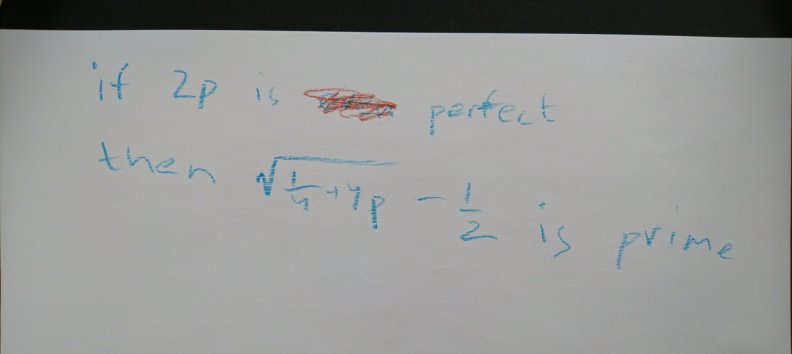 if 2p is perfect
then √(1/4+4p) - 1/2 is prime